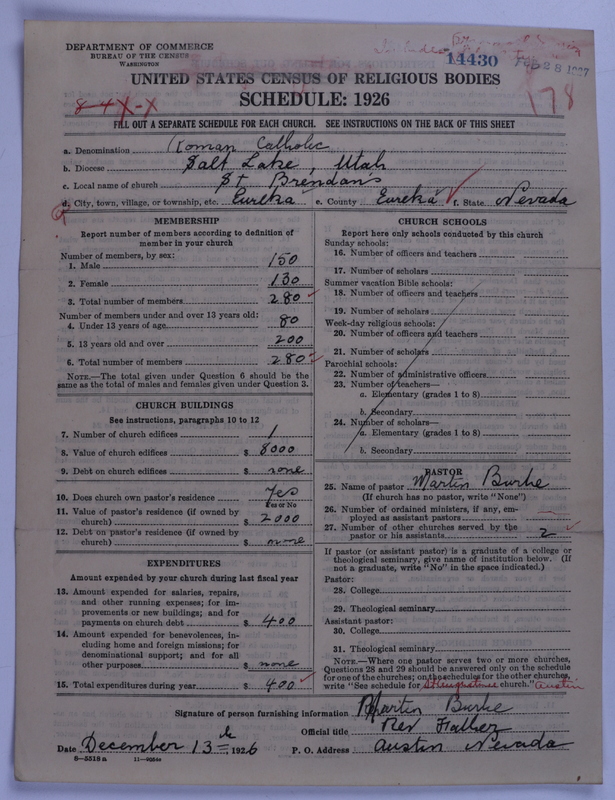 DEPARTMENT OF COMMERCE
BUREAU OF THE CENSUS
WASHINGTON
14430
FEB 28 1927
UNITED STATES CENSUS OF RELIGIOUS BODIES
SCHEDULE: 1926
8-4X-X
178
FILL OUT A SEPARATE SCHEDULE FOR EACH CHURCH. SEE INSTRUCTIONS ON THE BACK OF THIS SHEET
a. Denomination Roman Catholic
b. Diocese Salt Lake, Utah
c. Local name of church St Brendan's
d. City, town, village, or township, etc. Eureka e. County Eureka f. State Nevada
MEMBERSHIP
Report number of members according to definition of
member in your church
Number of members, by sex:
1. Male 150
2. Female 130
3. Total number of members 280
Number of members under and over 13 years old:
4. Under 13 years of age 80
5. 13 years old and over 200
6. Total number of members 280
NOTE.—The total given under Question 6 should be the
same as the total of males and females given under Question 3.
CHURCH BUILDINGS
See instructions, paragraphs 10 to 12
7. Number of church edifices 1
8. Value of church edifices $ 8000
9. Debt on church edifices $ none
10. Does church own pastor's residence Yes
Yes or No
11. Value of pastor's residence (if owned by
church) $ 2000
12. Debt on pastor's residence (if owned by
church) $ none
EXPENDITURES
Amount expended by your church during last fiscal year
13. Amount expended for salaries, repairs,
and other running expenses; for im-
provements or new buildings; and for
payments on church debt $ 400
14. Amount expended for benevolences, in-
cluding home and foreign missions; for
denominational support; and for all
other purposes $ none
15. Total expenditures during year $ 400
CHURCH SCHOOLS
Report here only schools conducted by this church
Sunday schools:
16. Number of officers and teachers
17. Number of scholars
Summer vacation Bible schools:
18. Number of officers and teachers
19. Number of scholars
Week-day religious schools:
20. Number of officers and teachers
21. Number of scholars
Parochial schools:
22. Number of administrative officers
23. Number of teachers—
a. Elementary (grades 1 to 8)
b. Secondary
24. Number of scholars—
a. Elementary (grades 1 to 8)
b. Secondary
PASTOR
25. Name of pastor Martin Burke
(If church has no pastor, write "None")
26. Number of ordained ministers, if any, em-
ployed as assistant pastors
27. Number of other churches served by the
pastor or his assistants 2
If pastor (or assistant pastor) is a graduate of a college or
theological seminary, give name of institution below. (If
not a graduate, write "No" in the space indicated.)
Pastor:
28. College
29. Theological seminary
Assistant pastor:
30. College
31. Theological seminary
NOTE.—Where one pastor serves two or more churches,
Questions 28 and 29 should be answered only on the schedule
for one of the churches; on the schedules for the other churches,
write "See schedule for St Augustine church." Austin
Signature of person furnishing information Martin Burke
Official title Rev Father
Date December 13th, 1926 P. O. Address Austin Nevada
8—5518a 11—9084a